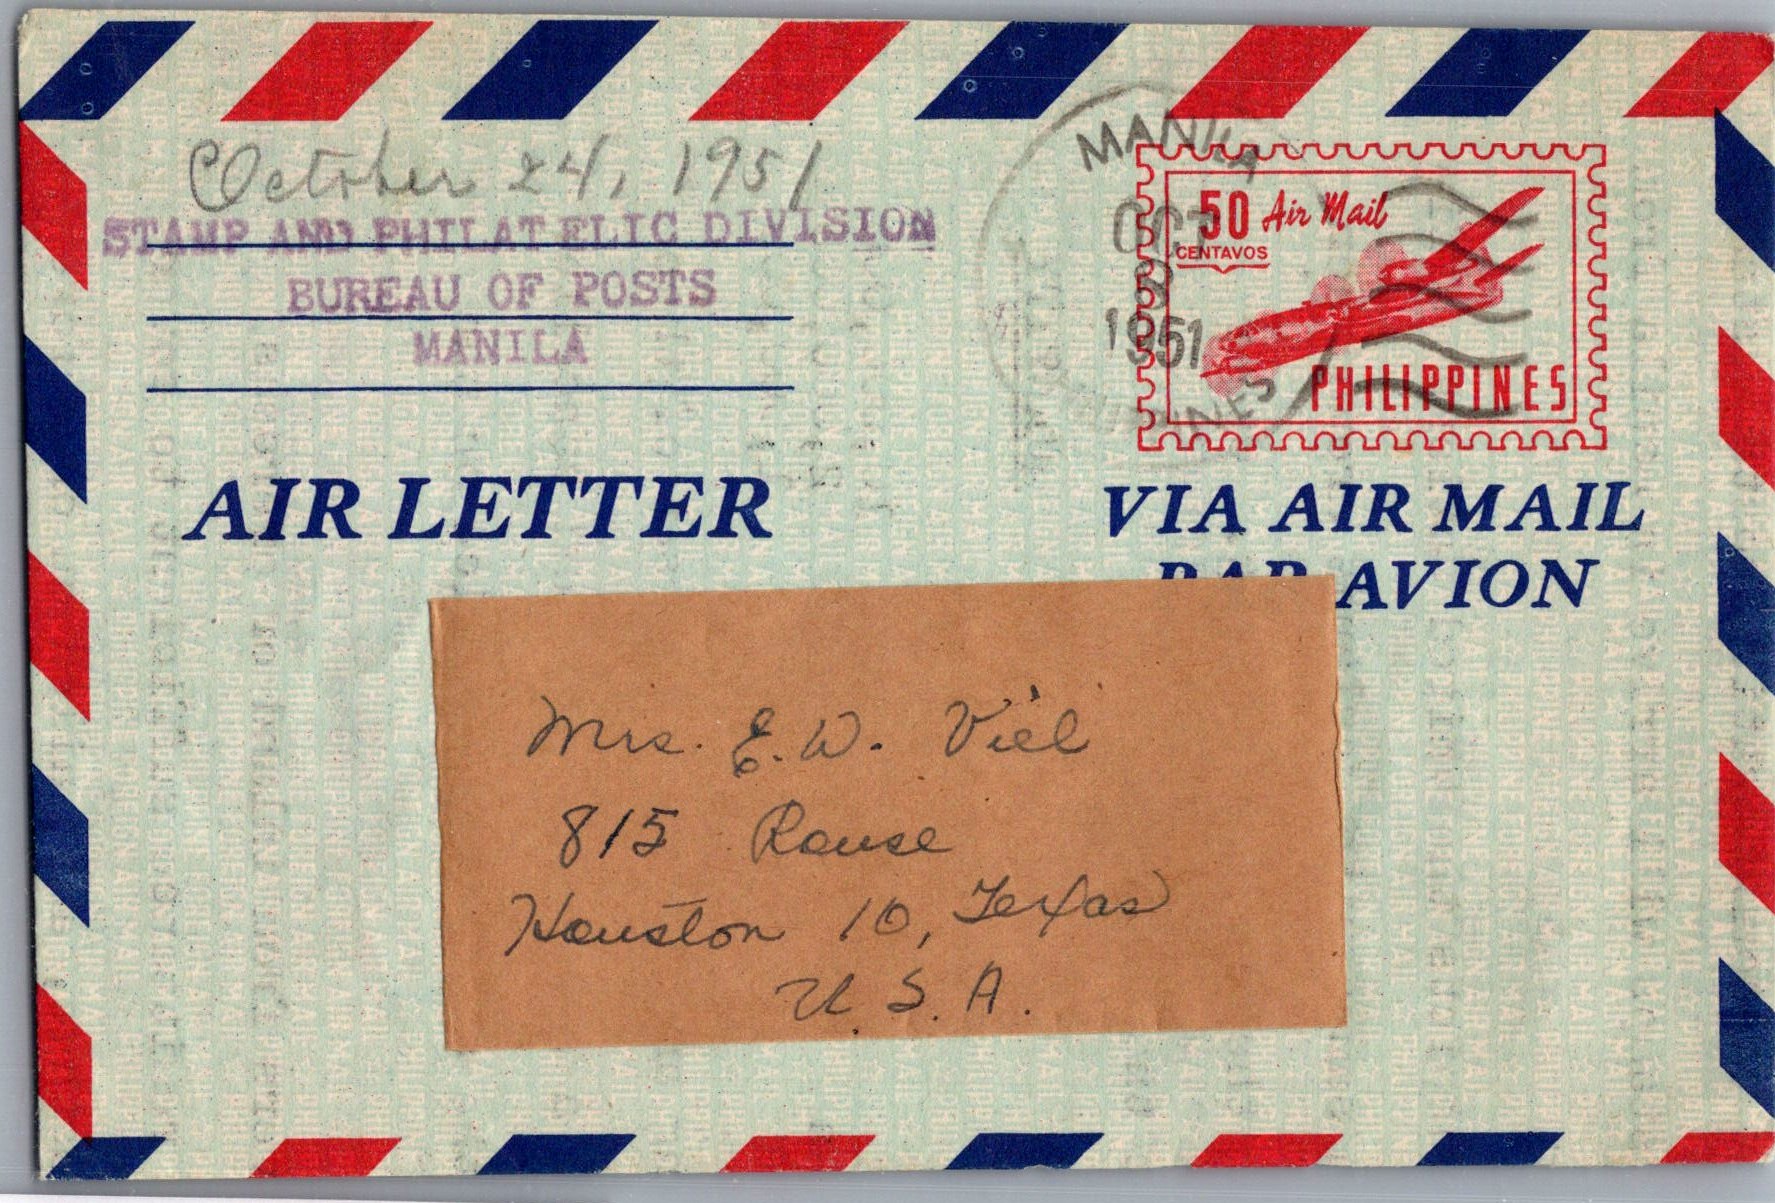 October 24, 1951
STAMP AND PHILATELIC DIVISION
BUREAU OF POSTS
MANILA
MANILA
OCT
1951
50 Air Mail
CENTAVOS
PHILIPPINES
AIR LETTER
VIA AIR MAIL
PAR AVION
Mrs. E. W. Viel
815 Rouse
Houston 10, Texas
U. S. A.